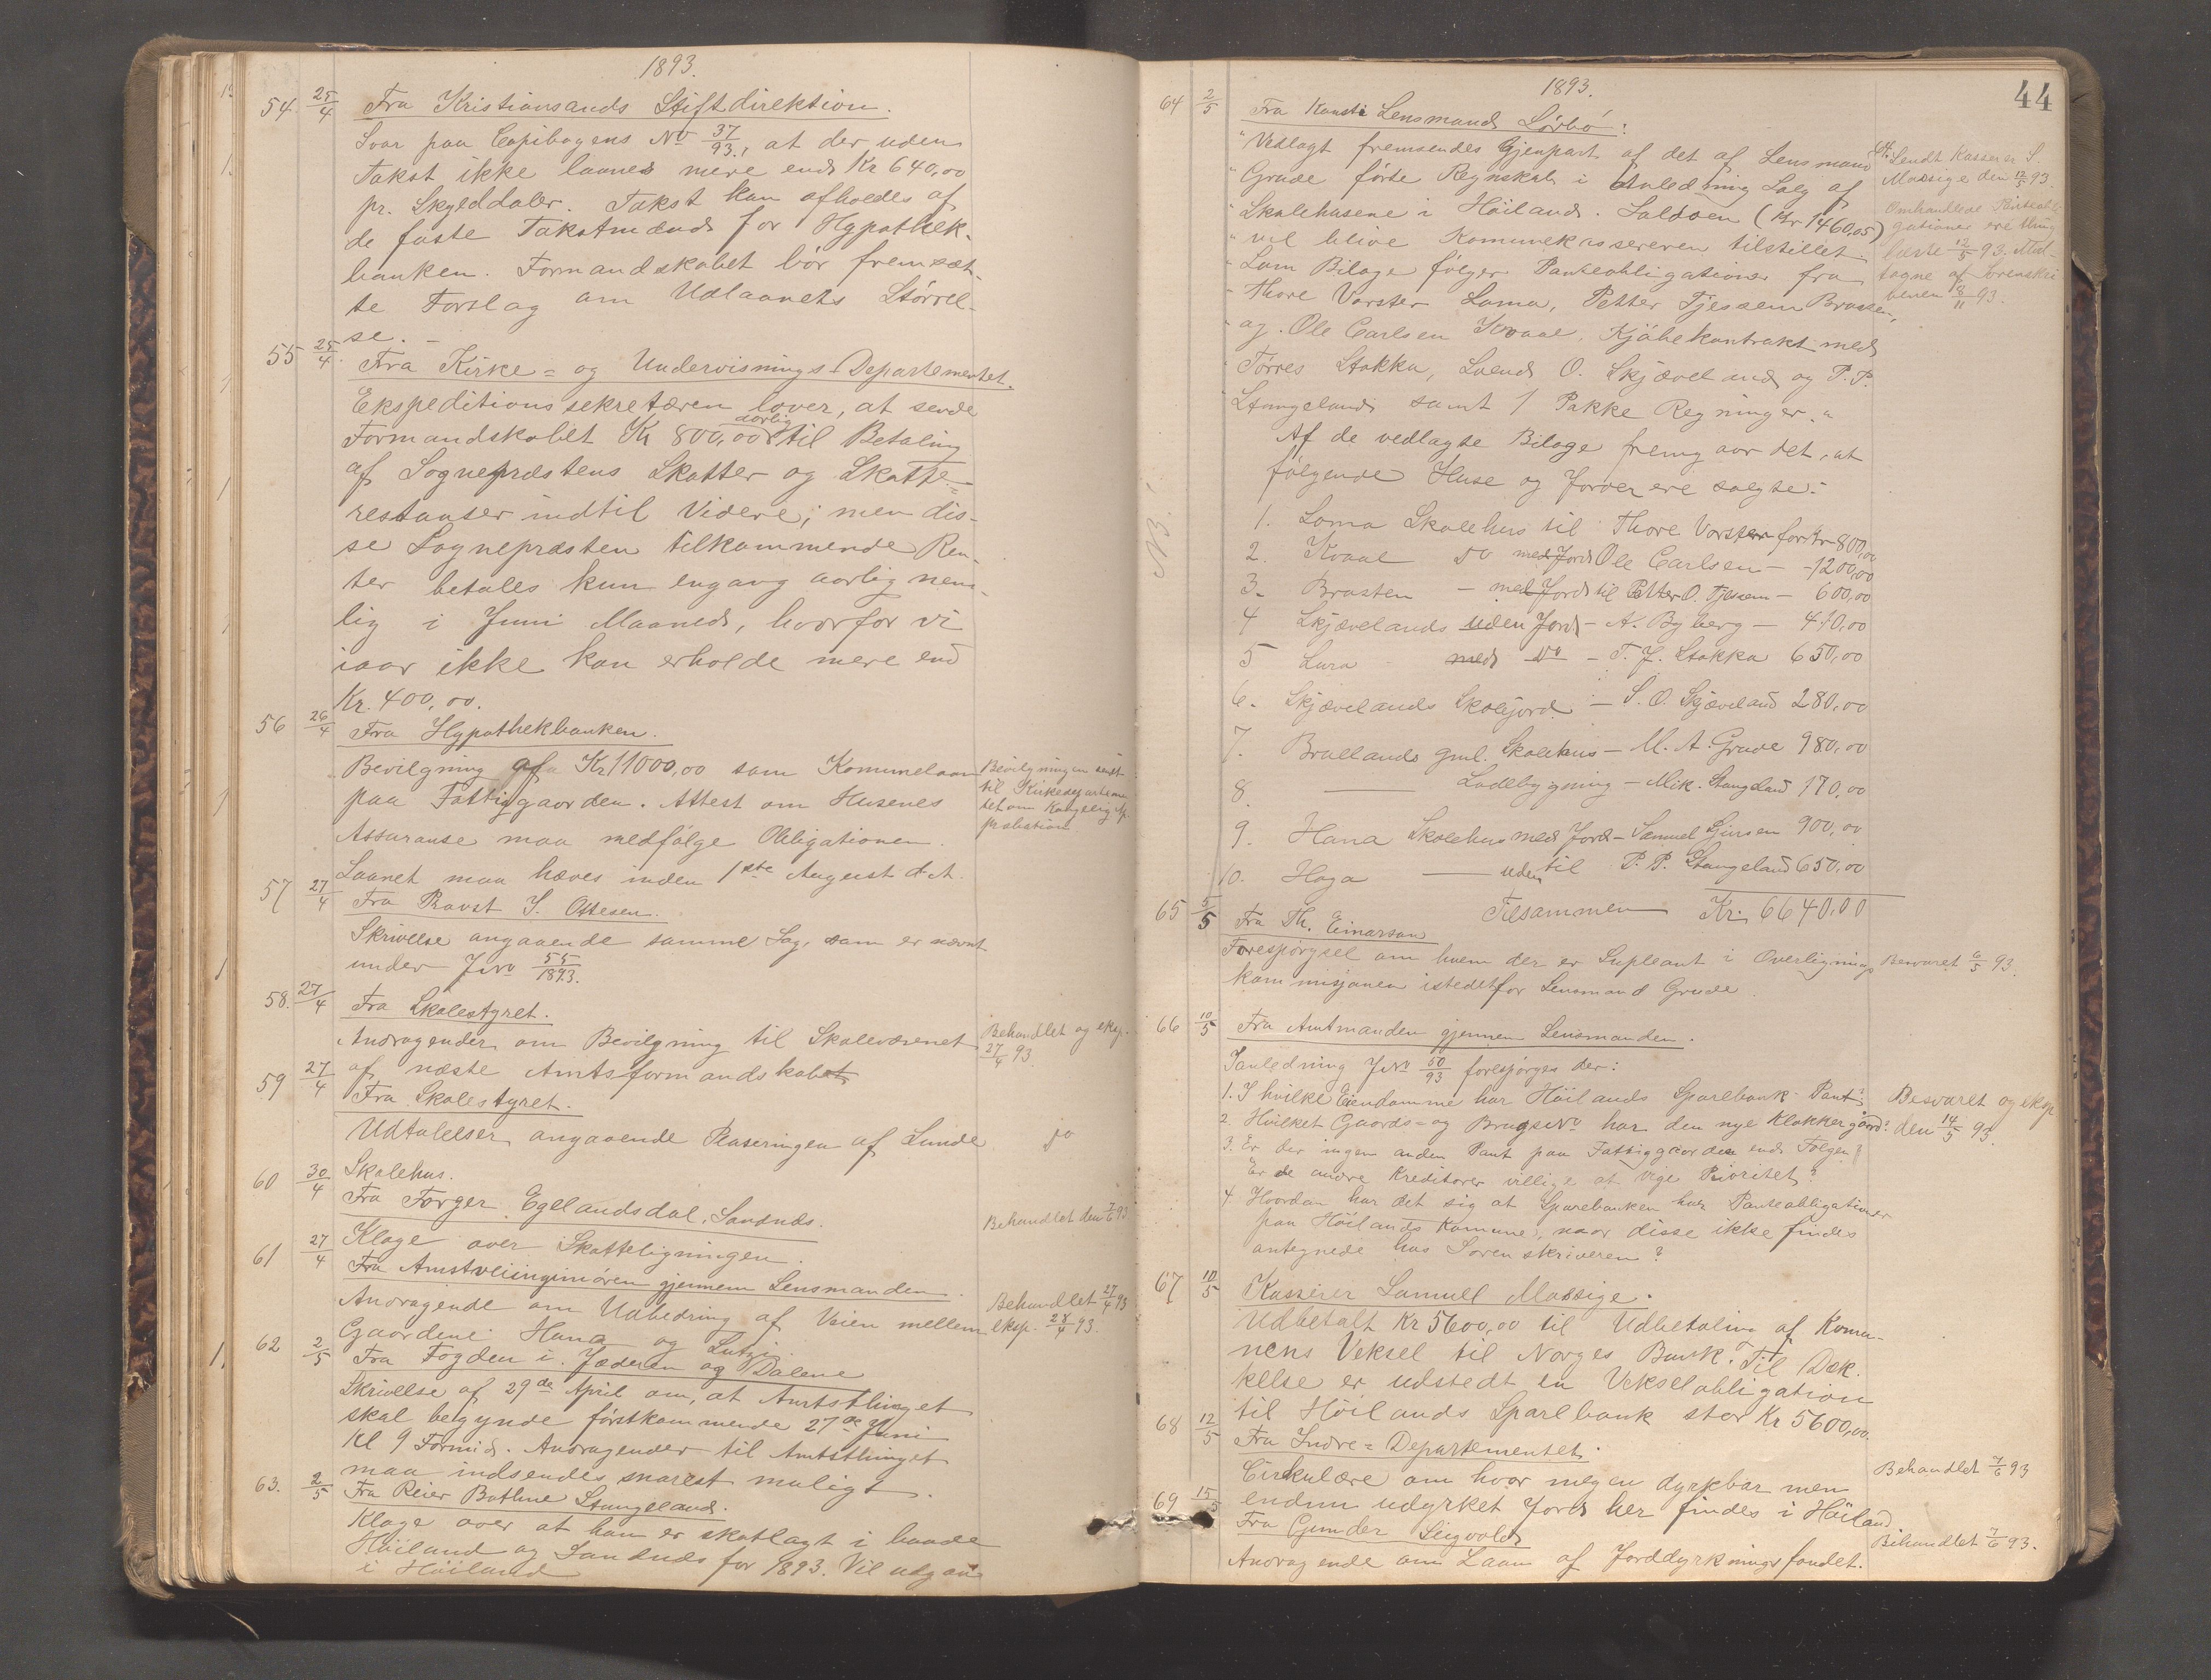 1893.
54. 25/4 Fra Kristiansands Stiftdirektion.
Svar paa Copibogens No 37/93., at der uden
Takst ikke laanes mere end Kr 640,00
pr. Skylddaler. Takst kan afholdes af
de faste Takstmænd for Hypothek-
banken. Formandskabet bör fremsæt-
te Forslag om Udlaanets Störrel-
se. -
55 25/4. Fra Kirke- og Undervisnings-Departementet.
Ekspeditionssekretæren lover, at sende
aarlig
Formandskabet Kr 800,00 til Betaling
af Sognepræstens Skatter og Skatte-
restanser indtil Videre; men dis-
se Sognepræsten tilkommende Ren-
ter betales kun engang aarlig nem-
lig i Juni Maaned, hvorfor vi
iaar ikke kan erholde mere end
Kr. 400,00.
56 26/4 Fra Hypothekbanken.
Bevilgning af Kr 11000,00 som Komunelaan
paa Fattiggaarden. Attest om Husenes
Assuranse maa medfölge Obligationen.
Laanet maa hæves inden 1ste August d.A.
Bevilgningen sendt
til Kirkedepartemen
tet om Kongelig Ap-
probation
57 27/4 Fra Provst S. Ottesen.
Skrivelse angaaende samme Sag, som er nævnt
under JNo 55/1893.
58. 27/4 Fra Skolestyret.
Andragender om Bevilgning til Skolevæsenet
af næste Amtsformandskab
Behandlet og eksp.
27/4 93
59 27/4 Fra Skolestyret.
Udtalelser angaaende Plaseringen af Lunde
Skolehus.
do
60 30/4 Fra Torger Egelandsdal, Sandnæs.
Klage over Skatteligningen.
Behandlet den 7/6 93
61 27/4 Fra Amstveiingeniören gjennem Lensmanden.
Andragende om Udbedring af Veien mellem
Gaardene Hana og
Behandlet 27/4 93
eksp. 28/4 93.
62 2/5 Fra Fogden i Jæderen og Dalene
Skrivelse af 29de April om, at Amtsthinget
skal begynde förstkommende 27de Juni
Kl 9 Formid. Andragender til Amtsthinget
maa indsendes snarest muligt.
63. 2/5 Fra Reier Bothne Stangeland.
Klage over at han er skatlagt i baade
Höiland og Sandnæs for 1893. Vil udgaa
i Höiland
1893.
44
64 2/5 Fra Konst. Lensmand Lörbö:
"Vedlagt fremsendes Gjenpart af det af Lensmand
"Grude förte Regnskab i Anledning Salg af
"Skolehusene i Höiland. Saldoen (Kr 1460,05)
"vil blive Komunekassereren tilstillet.
"Som Bilage fölger Panteobligationer fra
"Thore Vorster Soma, Petter Tjessem Brasten,
"og Ole Carlsen Kvaal. Kjöbekontrakt med
"Törres Stokka, Svend O. Skjæveland og P. P.
"Stangeland samt 1 Pakke Regninger."
Sendt Kasserer S.
Maasige den 12/5 93.
Omhandlede Panteobli-
gationer ere thing
læste 12/5 93. Mod-
tagne af Sorenskri
veren 2/11 93.
Af de vedlagte Bilage fremgaar det, at
fölgende Huse og Jorder ere solgte:
NB!
1. Soma Skolehus til Thore Vorster for Kr 800,00
2. Kvaal do med Jord Ole Carlsen - - 1200,00
3. Brasten - med Jord til Petter O. Tjessem - 600,00
4 Skjævelands uden Jord - A. Byberg - 410,00
5 Lura - med do - T. J. Stokka 650,00
6. Skjævelands Skolejord - S. O. Skjæveland 280,00
7. Bruelands gml. Skolehus - M. A. Grude 980,00
8. Ladebygning - Mik. Stangeland 170,00
9. Hana Skolehus med Jord - Samuel 900,00
10. Hoga uden til P. P. Stangeland 650,00
Tilsammen Kr. 6640,00
65 5/5 Fra Th. Einarson
Forespörgsel om hvem der er Supleant i Overlignings
kommisjonen istedetfor Lensmand Grude.
Besvaret 6/5 93.
66 10/5 Fra Amtmanden gjennem Lensmanden.
I anledning JNo 50/93 forespörges der:
1. I hvilke Eiendomme har Höilands Sparebank Pant?
2. Hvilket Gaards- og BrugsNo har den nye Klokkergaard?
3. Er der ingen anden Pant paa Fattiggaarden end Folgen?
Er de andre Kreditorer villige at vige Prioritet?
4. Hvordan har det sig at Sparebanken har Panteobligationer
paa Höilands Komune, naar disse ikke findes
antegnede hos Sorenskriveren?
Besvaret og eksp
den 14/5 93.
67 10/5 Kasserer Samuel Maasige.
Udbetalt Kr 5600,00 til Udbetaling af Komu-
nens Veksel til Norges Bank. Til Dæk-
kelse er udstedt en Vekselobligation
til Höilands Sparebank stor Kr 5600,00.
68 12/5 Fra Indre-Departementet.
Cirkulære om hvor megen dyrkbar men
endnu udyrket Jord her findes i Höiland
Behandlet 7/6 93
69 15/5 Fra Gunder Sigvolds
Andragende om Laan af Jorddyrkningsfondet.
Behandlet 7/6 93.